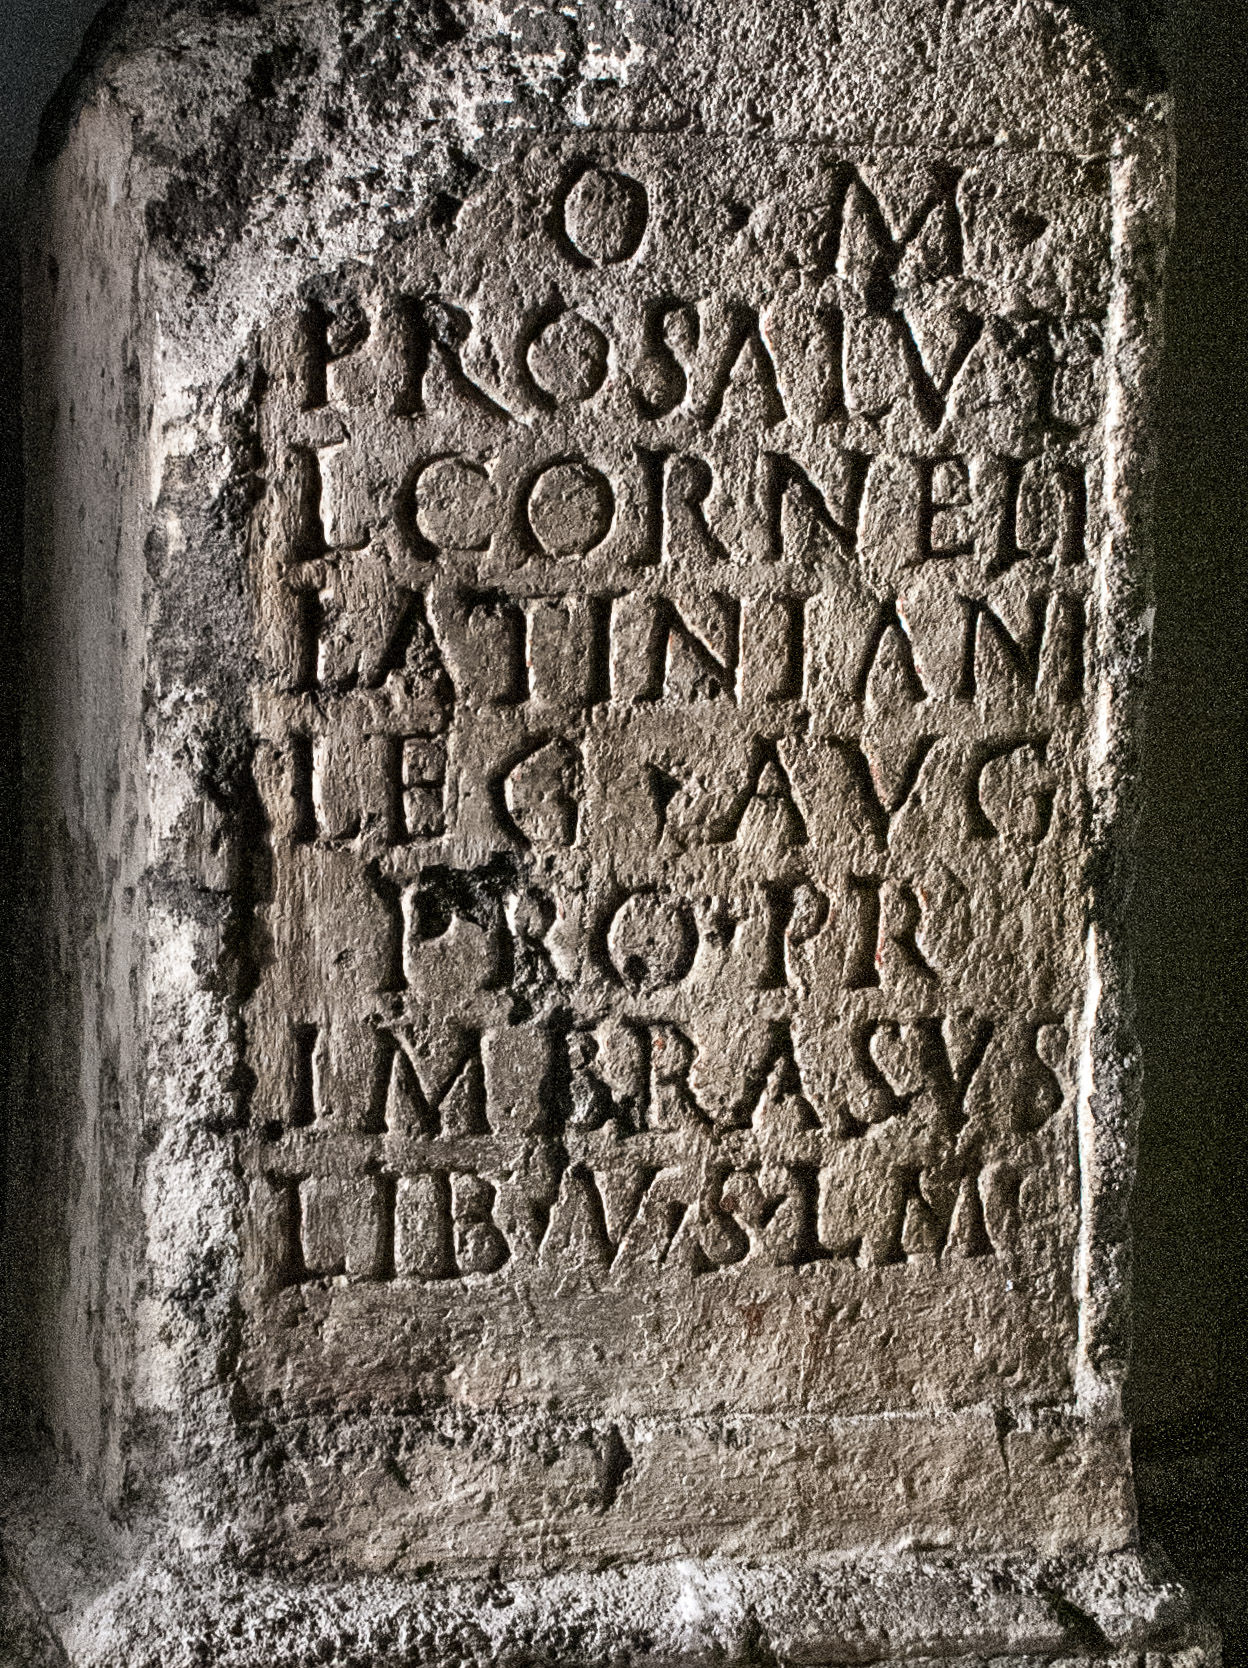 O · M ·
PRO SALVT
L CORNELI
LATINIANI
LEG · AVG
PRO · PR
IMBRASVS
LIB V S L M